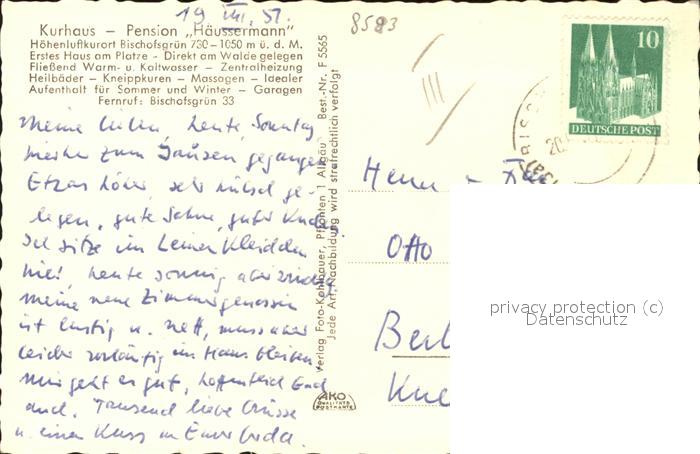 19. VIII. 51.
8583
Kurhaus – Pension „Häussermann"
Höhenluftkurort Bischofsgrün 730–1050 m ü. d. M.
Erstes Haus am Platze - Direkt am Walde gelegen
Fließend Warm- u. Kaltwasser – Zentralheizung
Heilbäder – Kneippkuren – Massagen – Idealer
Aufenthalt für Sommer und Winter – Garagen
Fernruf: Bischofsgrün 33
Meine Lieben, heute, Sonntag
zum Jausen gegangen
Etwas höher, sehr hübsch ge-
legen, gute Sahne, guter
Ich sitze im Leinenkleidchen
hier, heute sonnig aber windig
Meine neue Zimmergenossin
ist lustig u. nett, muss aber
leider vorläufig im Haus bleiben
Mir geht es gut, hoffentlich Euch
auch. Tausend liebe Grüsse
u. einen Kuss von Eurer
Verlag Foto-Kohlbauer, Pfronten 1 Allgäu Best.-Nr. F 5565
Jede Art Nachbildung wird strafrechtlich verfolgt
AKO
QUALITÄTS
POSTKARTE
III
10
DEUTSCHE POST
20.
Herrn
Otto
Berl
privacy protection (c)
Datenschutz